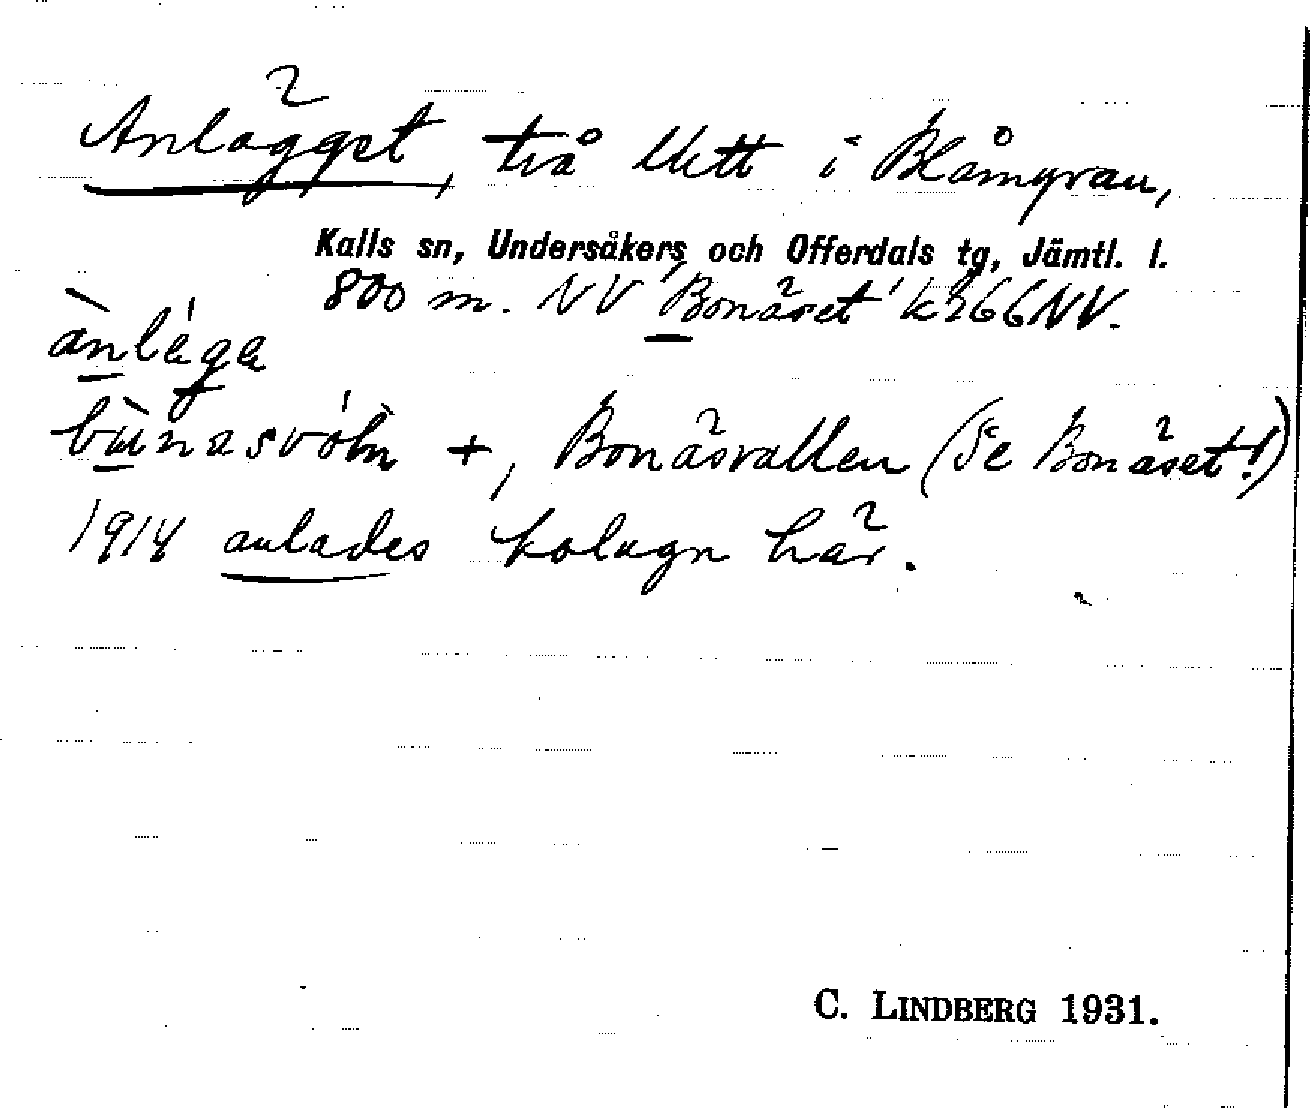 Anlägget, två slått i Blåmyran,
Kalls sn, Undersåkers och Offerdals tg, Jämtl. l.
800 m. NV Bonäset k266NV.
bùnasvóln +, Bonäsvallen (Se Bonäset!)
1914 anlades kolugn här.
C. LINDBERG 1931.